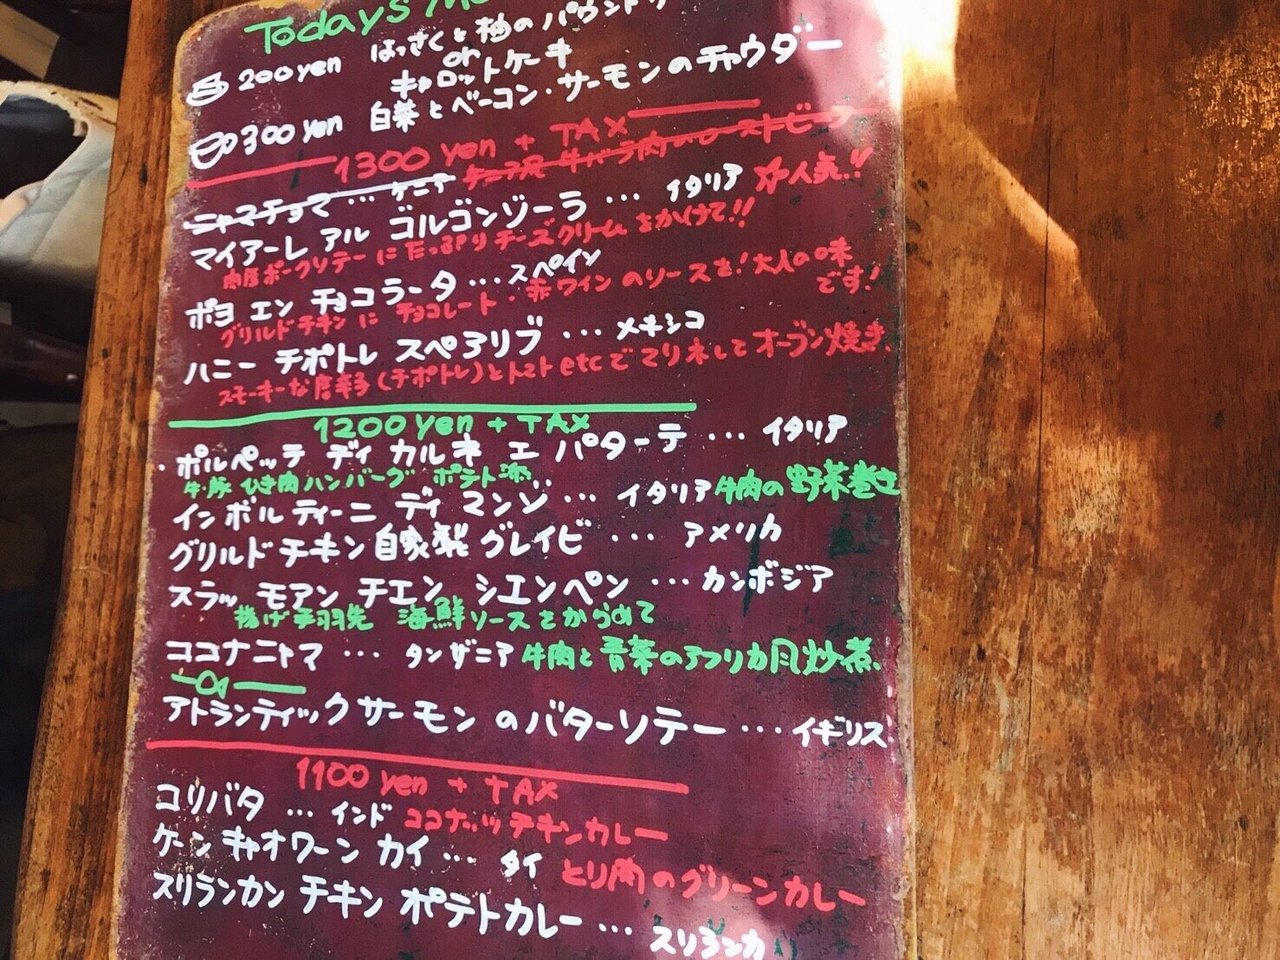 Today's
200yen はっさくと柚のパウンド
or
キャロットケーキ
300yen 白菜とベーコン・サーモンのチャウダー
1300 yen + TAX
ニャマチョマ … ケニア ケニア風 牛バラ肉のローストビーフ
マイアーレ アル ゴルゴンゾーラ … イタリア 人気!!
肉厚ポークソテーにたっぷりチーズクリームをかけて!!
ポヨ エン チョコラータ … スペイン
グリルドチキンに チョコレート・赤ワインのソースを!大人の味です!
ハニー チポトレ スペアリブ … メキシコ
スモーキーな唐辛子(チポトレ)とトマトetcでマリネしてオーブン焼き、
1200 yen + TAX
・ポルペッテ ディ カルネ エ パターテ … イタリア
牛・豚 ひき肉ハンバーグ ポテト添..
インボルティーニ ディ マンゾ … イタリア 牛肉の野菜巻き
グリルドチキン自家製グレイビ … アメリカ
スラッ モアン チエン シエンペン … カンボジア
揚げ手羽先 海鮮ソースをからめて
ココナニャマ … タンザニア 牛肉と青菜のアフリカ風炒煮、
アトランティックサーモンのバターソテー … イギリス
1100 yen + TAX
コリバタ … インド ココナッツチキンカレー
ケーン キャオワーン カイ … タイ とり肉のグリーンカレー
スリランカン チキン ポテトカレー … スリランカ